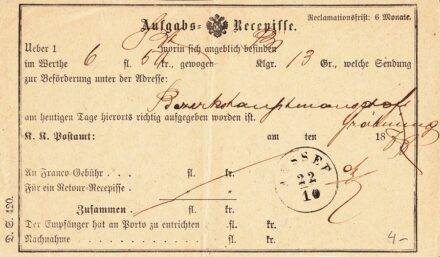 Aufgabs- Recepisse.
Reclamationsfrist: 6 Monate.
Ueber 1 worin sich angeblich befinden
im Werthe 6 fl. 50 kr., gewogen Klgr. 13 Gr., welche Sendung
zur Beförderung unter der Adresse:
am heutigen Tage hierorts richtig aufgegeben worden ist.
K. K. Postamt: am ten 18
An Franco-Gebühr fl. kr.
Für ein Retour-Recepisse. " "
Zusammen fl. kr.
Der Empfänger hat an Porto zu entrichten fl. kr.
Nachnahme fl. kr.
D. S. 420.
22
10
4-